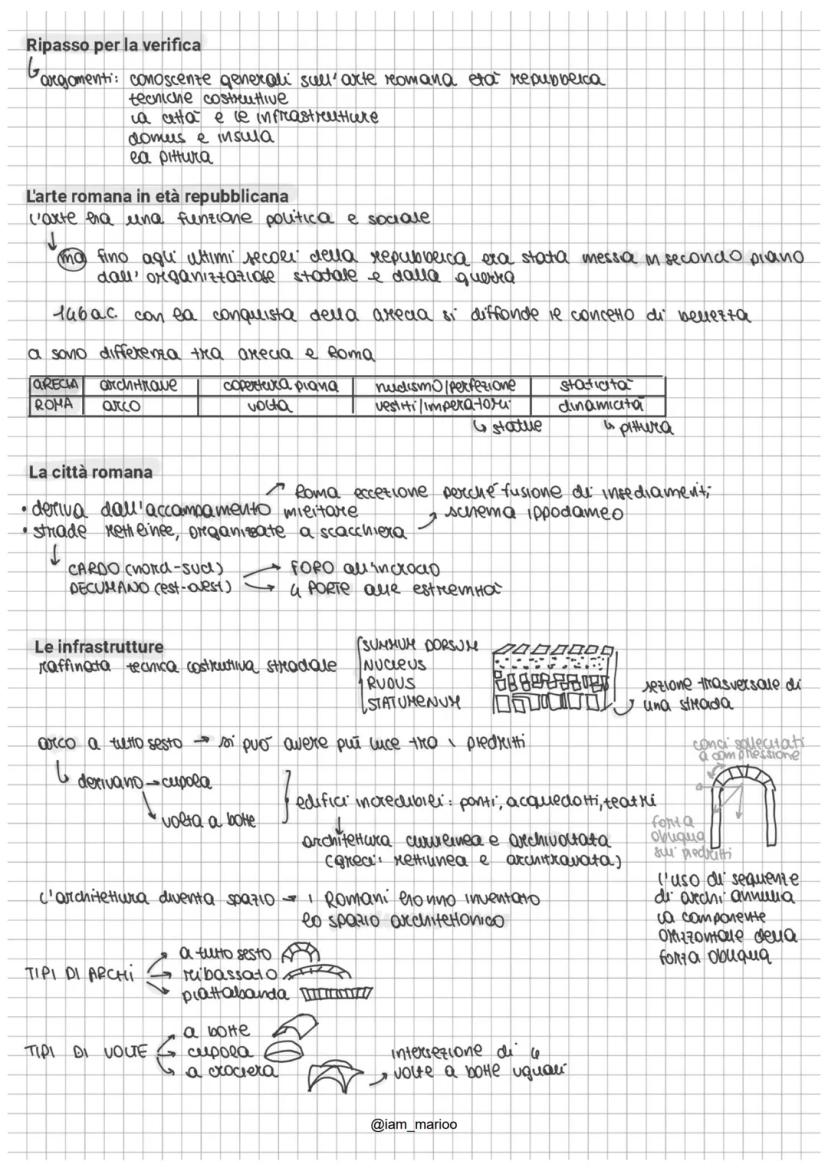 Ripasso per la verifica
argomenti: conoscenze generali sull'arte romana età repubblica
tecniche costruttive
la città e le infrastrutture
domus e insula
la pittura
L'arte romana in età repubblicana
l'arte ha una funzione politica e sociale
ma fino agli ultimi secoli della repubblica era stata messa in secondo piano
dall'organizzazione statale e dalla guerra
146 a.C. con la conquista della Grecia si diffonde il concetto di bellezza
ci sono differenza tra Grecia e Roma
GRECIA architrave copertura piana nudismo/perfezione staticità
ROMA arco volta vestiti/imperatori dinamicità
statue pittura
La città romana
Roma eccezione perché fusione di insediamenti
• deriva dall'accampamento militare
• strade rettilinee, organizzate a scacchiera schema ippodameo
CARDO (nord-sud) FORO all'incrocio
DECUMANO (est-ovest) 4 PORTE alle estremità
Le infrastrutture
raffinata tecnica costruttiva stradale
SUMMUM DORSUM
NUCLEUS
RUDUS
STATUMENUM
sezione trasversale di
una strada
arco a tutto sesto → si può avere più luce tra i piedritti
derivano → cupola
volta a botte
edifici incredibili: ponti, acquedotti, teatri
architettura curvilinea e archivoltata
(greci: rettilinea e architravata)
conci sollecitati
a compressione
forza
obliqua
sui piedritti
l'uso di sequenze
di archi annulla
la componente
orizzontale della
forza obliqua
l'architettura diventa spazio → i Romani hanno inventato
lo spazio architettonico
TIPI DI ARCHI
a tutto sesto
ribassato
piattabanda
TIPI DI VOLTE
a botte
cupola
a crociera
intersezione di 4
volte a botte uguali
@iam_marioo